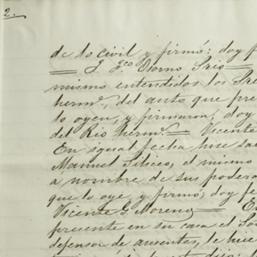 2.
de lo civil y firmó: doy f
J. Fco Osorno Srio
mismo entendidos los Sre
hermo, del auto que pre
lo oyen, y firmaron, doy
del Rio hermo Vicente
En igual fecha hice sa
Manuel el mismo
a nombre de sus podera
que lo oye y firmó; doy fe
Vicente G. Moreno E
presente en su casa el So
defensor de ausentes, le hice